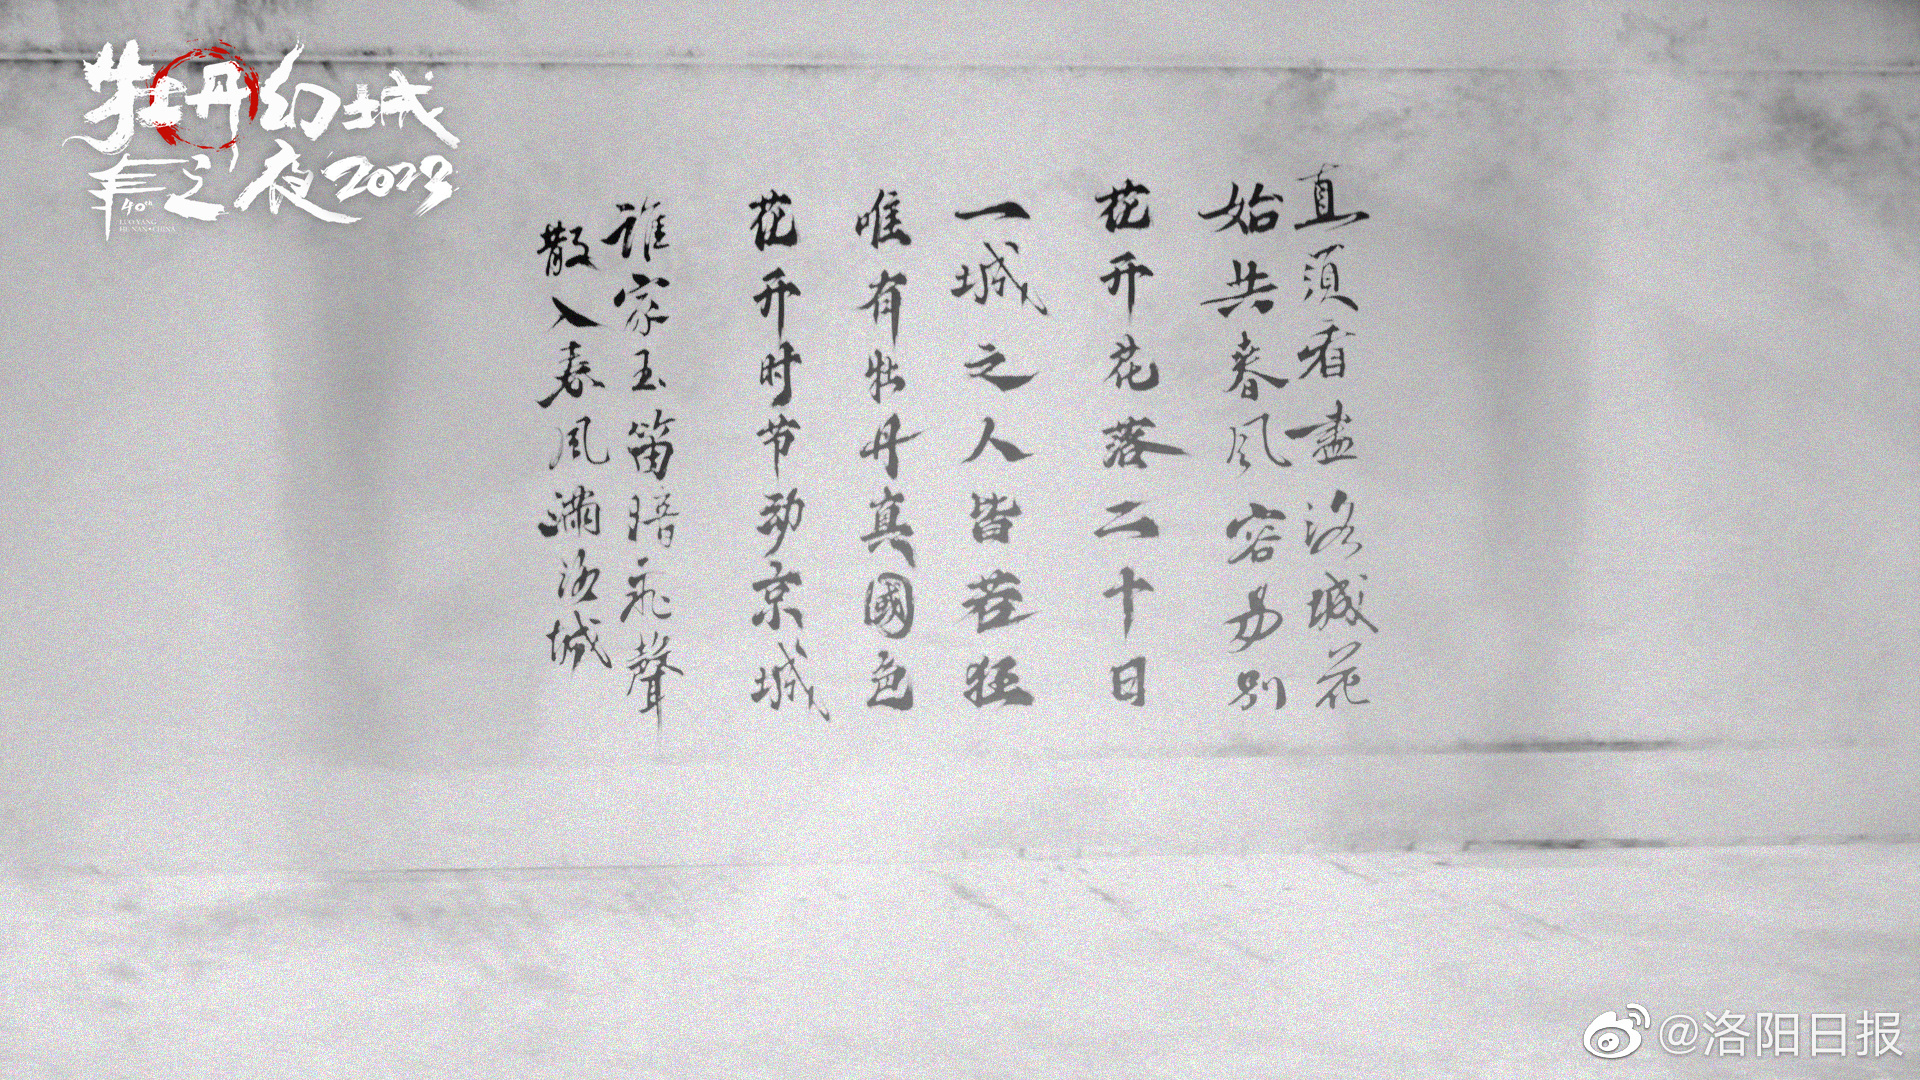 牡丹幻城
年之夜2023
40th
LUO YANG
HE NAN•CHINA
直須看盡洛城花
始共春风容易别
花开花落二十日
一城之人皆若狂
唯有牡丹真國色
花开时节动京城
谁家玉笛暗飛聲
散入春風滿洛城
@洛阳日报